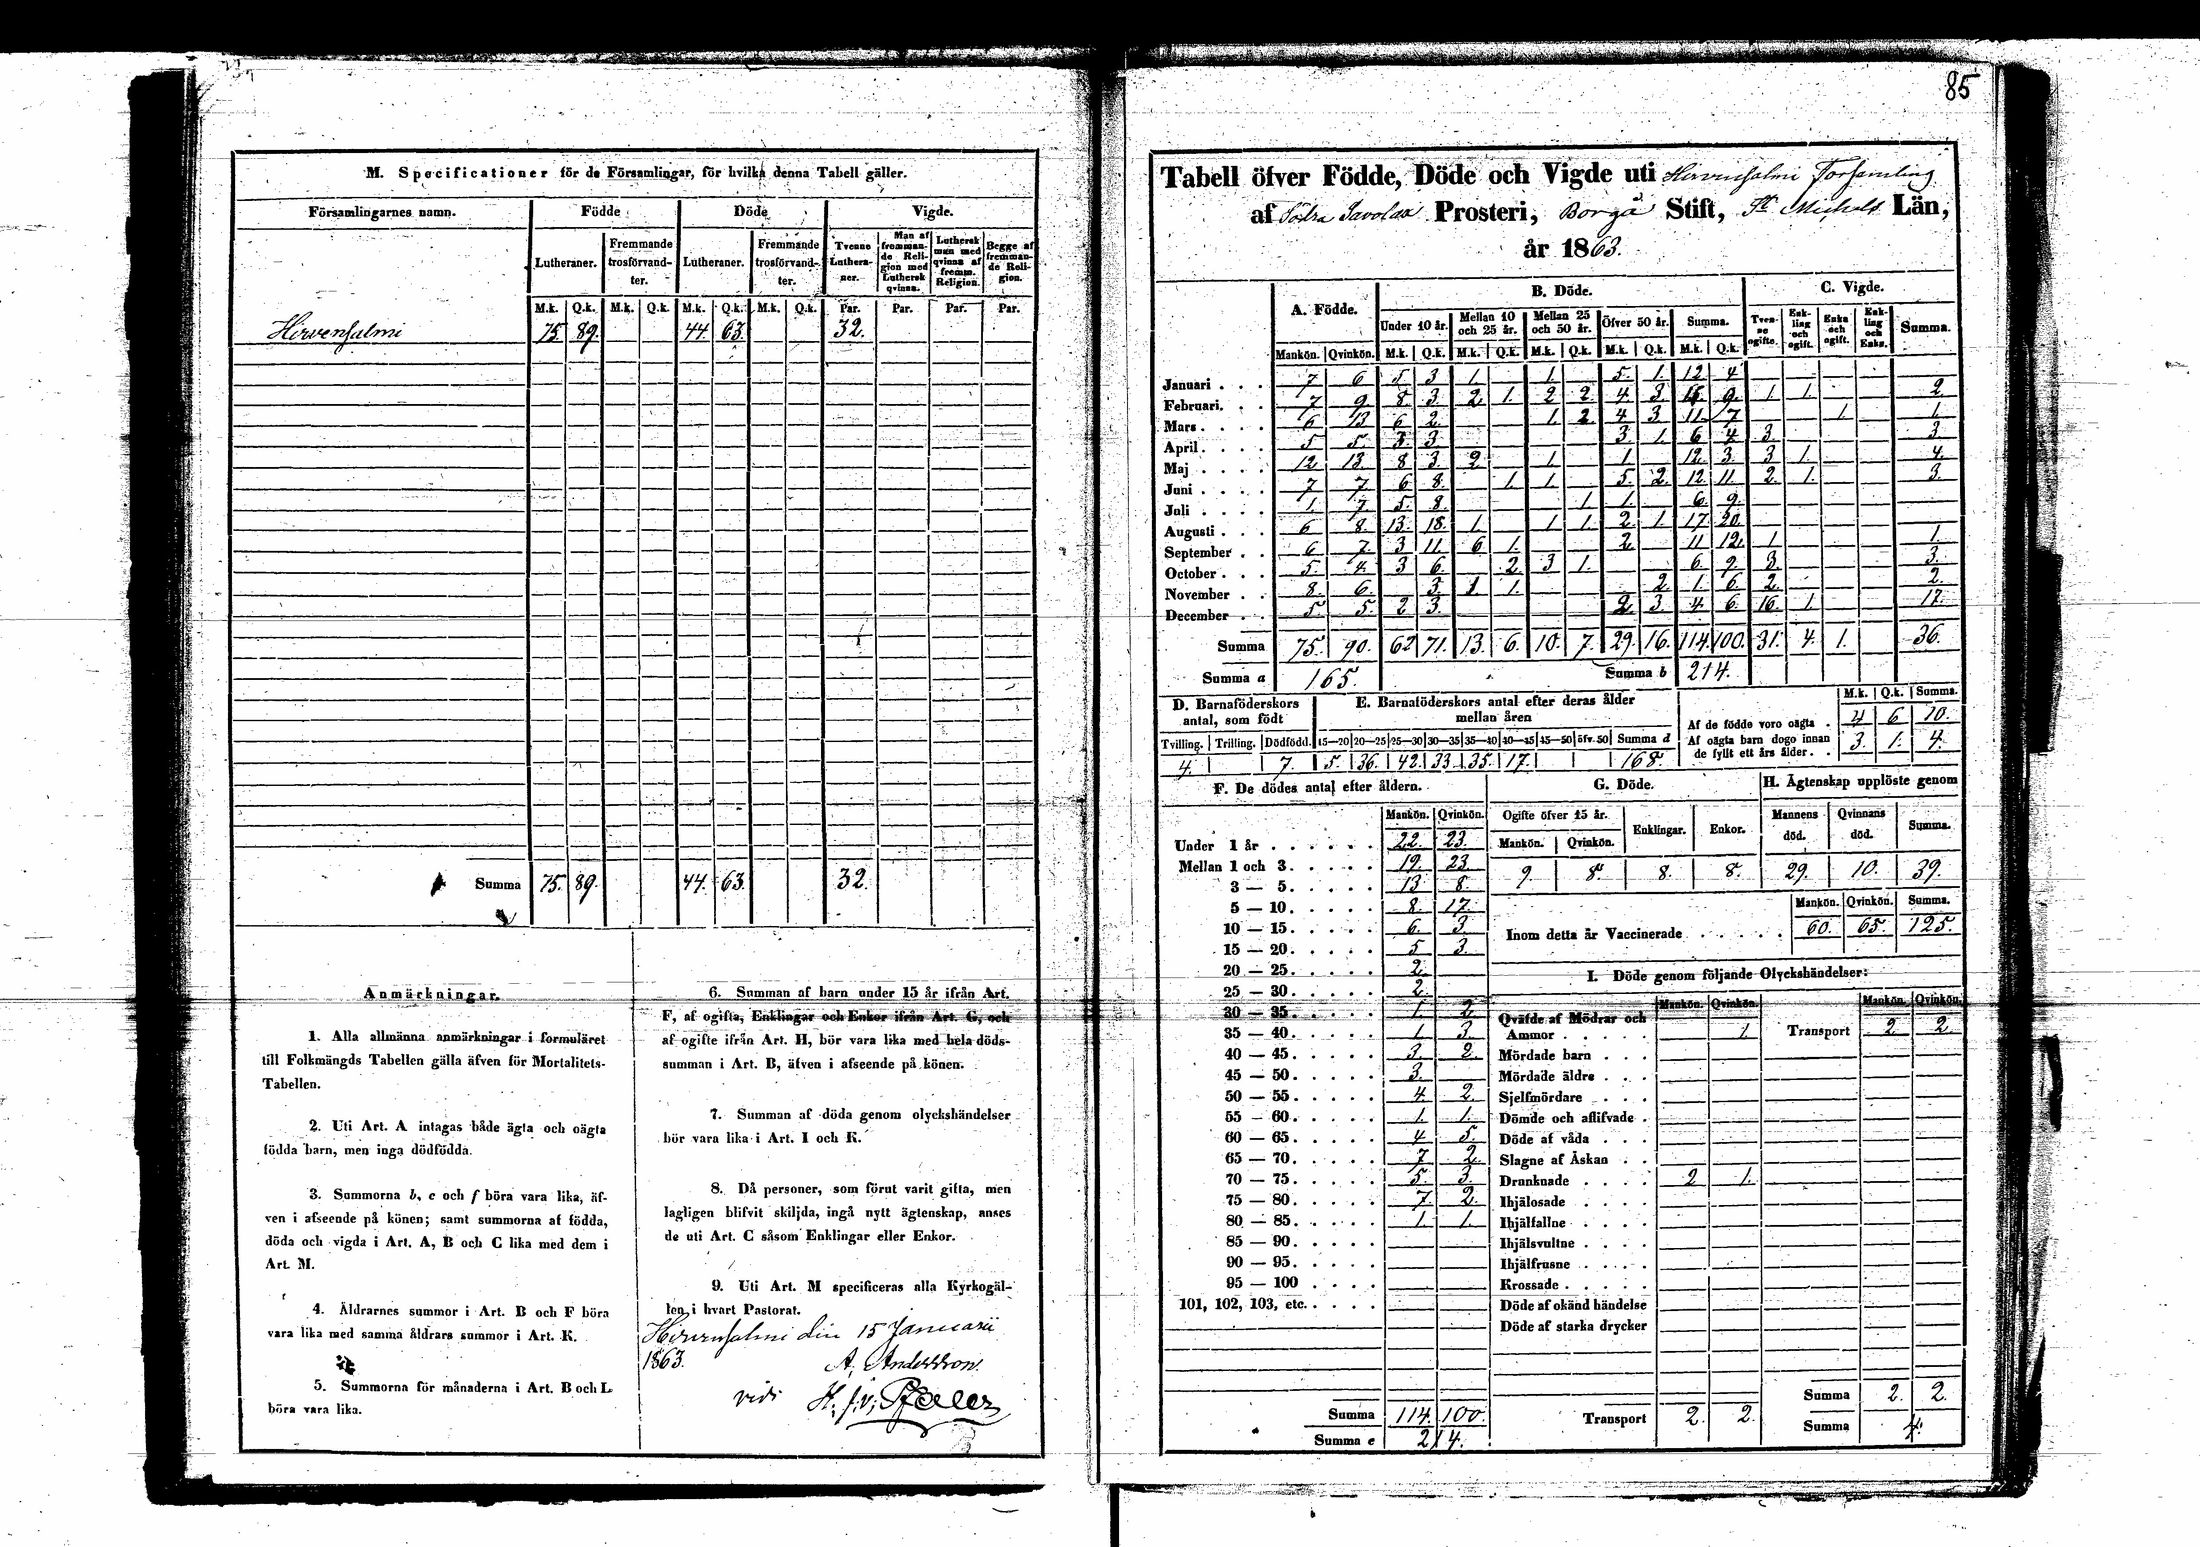 M. Specificationer för de Församlingar, för hvilka denna Tabell gäller.
Församlingarnes namn. Födde Döde Vigde.
Lutheraner. Fremmande trosförvandter. Lutheraner. Fremmande trosförvandter. Tvenne Lutheraner. Man af fremmande Religion med Luthersk qvinna. Luthersk man med qvinna af fremm. Religion. Begge af fremmande Religion.
M.k. Q.k. M.k. Q.k. M.k. Q.k. M.k. Q.k. Par. Par. Par. Par.
Hirvensalmi 75. 89. 44. 63. 32.
Summa 75. 89. 44. 63. 32.
Anmärkningar.
1. Alla allmänna anmärkningar i formuläret
till Folkmängds Tabellen gälla äfven för Mortalitets-
Tabellen.
2. Uti Art. A intagas både ägta och oägta
födda barn, men inga dödfödda.
3. Summorna b, e och f böra vara lika, äf-
ven i afseende på könen; samt summorna af födda,
döda och vigda i Art. A, B och C lika med dem i
Art. M.
4. Åldrarnes summor i Art. B och F böra
vara lika med samma åldrars summor i Art. K.
5. Summorna för månaderna i Art. B och L
böra vara lika.
6. Summan af barn under 15 år ifrån Art.
F, af ogifta, Enklingar och Enkor ifrån Art. G, och
af ogifte ifrån Art. H, bör vara lika med hela döds-
summan i Art. B, äfven i afseende på könen.
7. Summan af döda genom olyckshändelser
bör vara lika i Art. I och K.
8. Då personer, som förut varit gifta, men
lagligen blifvit skiljda, ingå nytt ägtenskap, anses
de uti Art. C såsom Enklingar eller Enkor.
9. Uti Art. M specificeras alla Kyrkogäl-
len i hvart Pastorat.
Hirvensalmi den 15 Januarii
1863. A. Andersson.
vidi
85
Tabell öfver Födde, Döde och Vigde uti Hirvensalmi Församling
af Södra Savolax Prosteri, Borgå Stift, St Michels Län,
år 1863.
A. Födde. B. Döde. C. Vigde.
Under 10 år. Mellan 10 och 25 år. Mellan 25 och 50 år. Öfver 50 år. Summa. Tvenne ogifte. Enkling och ogift. Enka och ogift. Enkling och Enka. Summa.
Mankön. Qvinkön. M.k. Q.k. M.k. Q.k. M.k. Q.k. M.k. Q.k. M.k. Q.k.
Januari . . . 7 6 5 3 1. 1. 5. 1. 12 4
Februari. . . 7 9 8. 3. 2 1. 2 2 4 3. 16 9. 1 1. 2
Mars . . . . 6 13 6 2. 1. 2 4 3 11. 7 1. 1.
April . . . . 5 5. 3 3. 3 1. 6 4 3. 3.
Maj . . . . 12 13. 8 3. 2 1. 1. 12. 3. 3 1. 4.
Juni . . . . 7 7. 6 8. 1. 1. 5. 2 12 11. 2. 1. 3.
Juli . . . . 1. 7 5. 8. 1 1. 6. 9.
Augusti . . . 6 8. 13. 18. 1. 1 1. 2 1. 17. 20.
September . . 6 7. 3 11. 6 1. 2. 11 12. 1. 1.
October . . . 5. 4. 3 6. 2. 3 1. 6. 9. 3. 3.
November . . 8. 6. 3. 1 1. 2. 1. 6. 2. 2.
December . . 5 5. 2 3. 2 3. 4 6. 16. 1. 17.
Summa 75. 90. 62 71. 13. 6. 10. 7. 29. 16. 114. 100. 31. 4. 1. 36.
Summa a 165. Summa b 214.
D. Barnaföderskors antal, som född
E. Barnaföderskors antal efter deras ålder mellan åren
Tvilling. Trilling. Dödfödd. 15—20 20—25 25—30 30—35 35—40 40—45 45—50 öfv. 50 Summa d
4. 7. 5. 36. 42. 33. 35. 17. 168.
M.k. Q.k. Summa.
Af de födde voro oägta . 4 6 10.
Af oägta barn dogo innan de fyllt ett års ålder . . 3. 1. 4.
F. De dödes antal efter åldern.
Mankön. Qvinkön.
Under 1 år . . . . . . 22. 23.
Mellan 1 och 3. . . . . 19. 23
3 — 5. . . . . 13 8.
5 — 10. . . . . 8. 17.
10 — 15. . . . . 6. 3.
15 — 20. . . . . 5 3.
20 — 25. . . . . 2.
25 — 30. . . . . 2.
30 — 35. . . . . 1. 2
35 — 40. . . . . 1. 3.
40 — 45. . . . . 3. 2.
45 — 50. . . . . 3.
50 — 55. . . . . 4. 2
55 — 60. . . . . 1. 1.
60 — 65. . . . . 4 5.
65 — 70. . . . . 7 2.
70 — 75. . . . . 5. 3.
75 — 80. . . . . 7. 2.
80 — 85. . . . . 1. 1.
85 — 90. . . . .
90 — 95. . . . .
95 — 100 . . . .
101, 102, 103, etc. . . . .
Summa 114. 100.
Summa e 214.
G. Döde.
Ogifte öfver 15 år. Enklingar. Enkor.
Mankön. Qvinkön.
9. 8. 8. 8.
H. Ägtenskap upplöste genom
Mannens död. Qvinnans död. Summa.
29. 10. 39.
Mankön. Qvinkön. Summa.
Inom detta år Vaccinerade . . . . . 60. 65. 125.
I. Döde genom följande Olyckshändelser:
Mankön. Qvinkön. Mankön. Qvinkön.
Qväfde af Mödrar och
Ammor . . . . . 1. Transport 2 2
Mördade barn . . .
Mördade äldre . . .
Sjelfmördare . . .
Dömde och aflifvade .
Döde af våda . . .
Slagne af Åskan . .
Drunknade . . . . 2 1.
Ihjälosade . . . .
Ihjälfallne . . . .
Ihjälsvultne . . . .
Ihjälfrusne . . . .
Krossade . . . . .
Döde af okänd händelse
Döde af starka drycker
Summa 2. 2.
Transport 2. 2.
Summa 4.